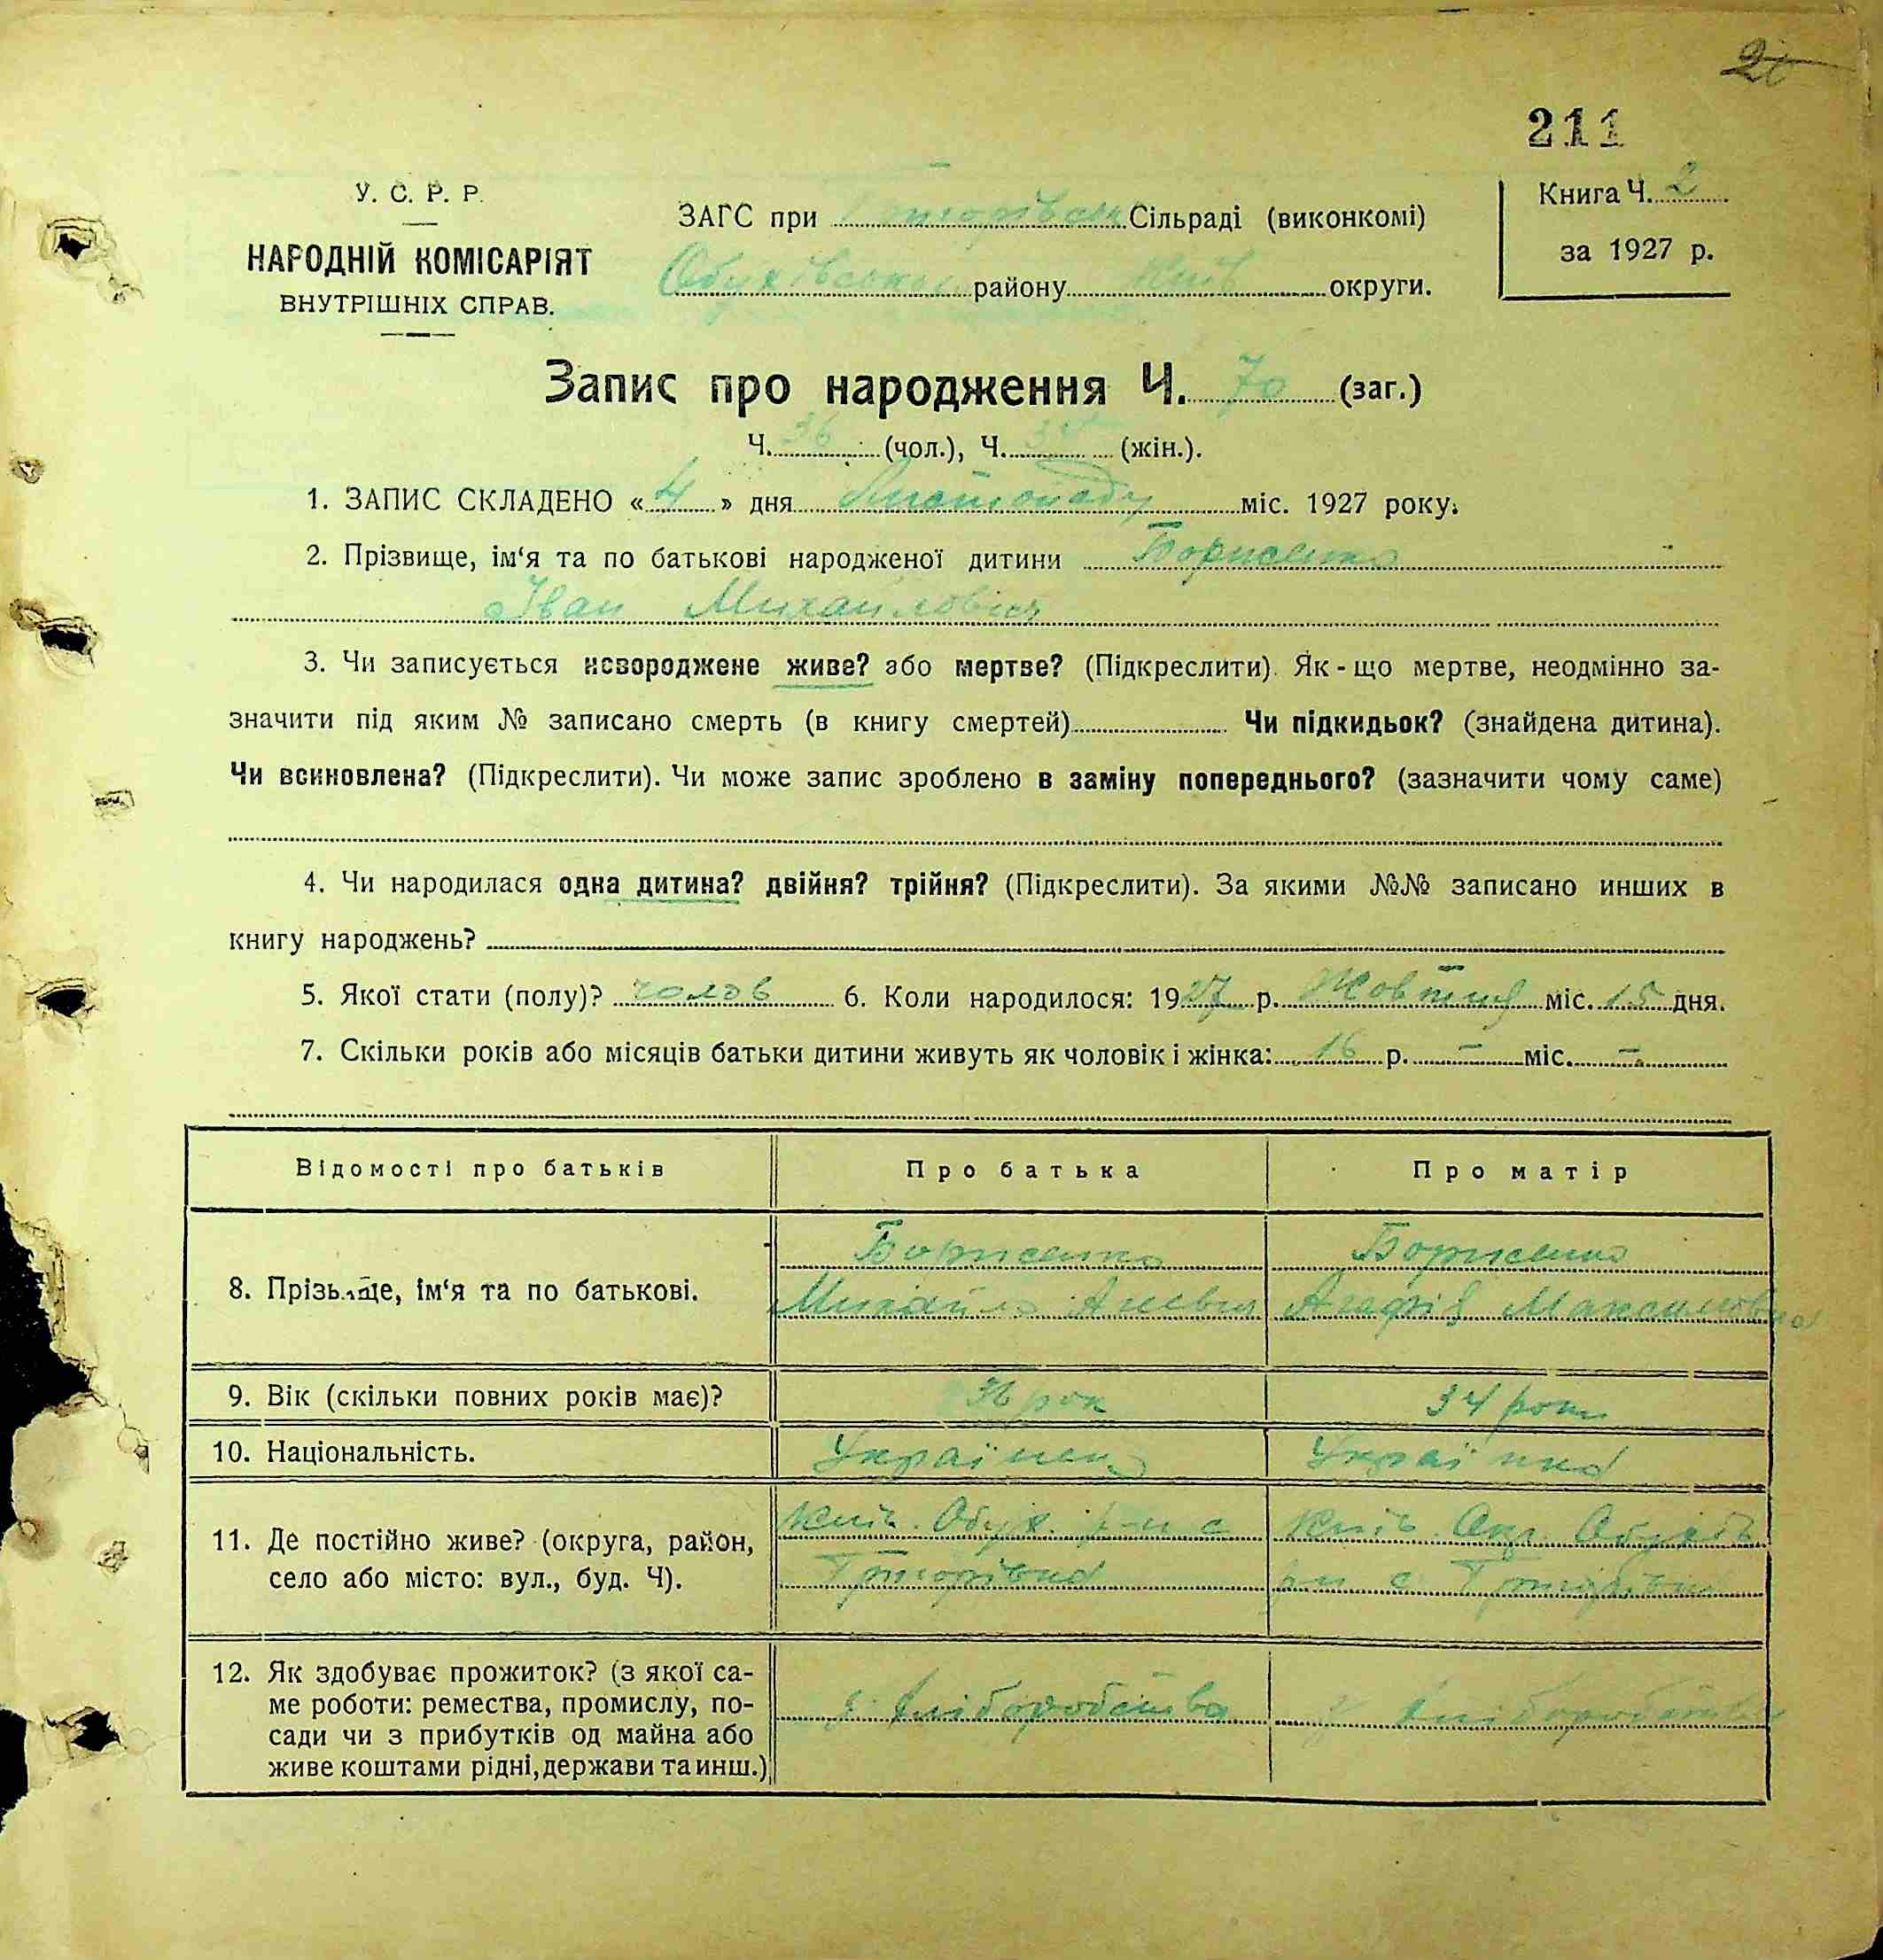 211
У. С. Р. Р.
НАРОДНІЙ КОМІСАРІЯТ
ВНУТРІШНІХ СПРАВ.
ЗАГС при Сільраді (виконкомі)
Обухівського району Київ округи.
Книга Ч. 2
за 1927 р.
Запис про народження Ч. 70 (заг.)
Ч. 36 (чол.), Ч. (жін.).
1. ЗАПИС СКЛАДЕНО « 4 » дня Листопаду міс. 1927 року.
2. Прізвище, ім'я та по батькові народженої дитини Борисенко
Іван Михайлович
3. Чи записується новороджене живе? або мертве? (Підкреслити). Як-що мертве, неодмінно за-
значити під яким № записано смерть (в книгу смертей) Чи підкидьок? (знайдена дитина).
Чи всиновлена? (Підкреслити). Чи може запис зроблено в заміну попереднього? (зазначити чому саме)
4. Чи народилася одна дитина? двійня? трійня? (Підкреслити). За якими №№ записано инших в
книгу народжень?
5. Якої стати (полу)? чолов 6. Коли народилося: 1927 р. Жовтня міс. 15 дня.
7. Скільки років або місяців батьки дитини живуть як чоловік і жінка: 16 р. — міс. —
Відомості про батьків Про батька Про матір
8. Прізвище, ім'я та по батькові.
Борисенко Борисенко
Михайло Агафія Максимовна
9. Вік (скільки повних років має)? 36 рок 34 роки
10. Національність. Українець Українка
11. Де постійно живе? (округа, район,
село або місто: вул., буд. Ч).
Київ. Обух. р-н с Київ. Окр. Обухів
Григорівка рн с Григорівка
12. Як здобуває прожиток? (з якої са-
ме роботи: ремества, промислу, по-
сади чи з прибутків од майна або
живе коштами рідні, держави та инш.)
з хліборобства з хліборобства